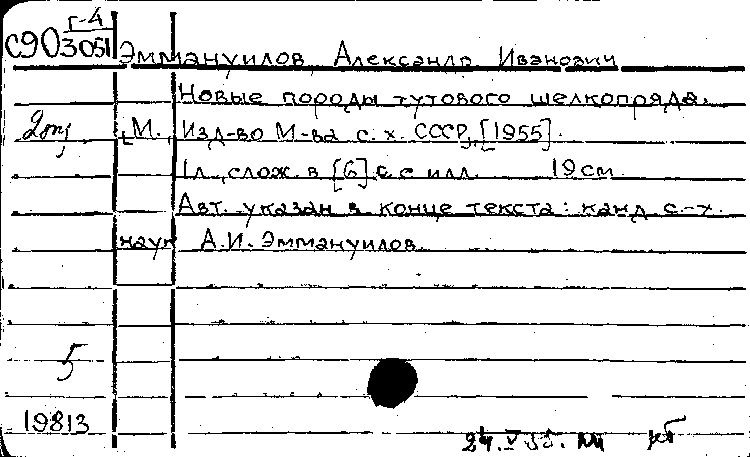 Г-4
С90 3051 Эммануилов, Александр Иванович
Новые породы тутового шелкопряда.
[М.], Изд-во М-ва с. х. СССР, [1955].
1 л., слож. в [6] с. с илл. 19 см
Авт. указан в конце текста: канд. с.-х.
наук А.И. Эммануилов.
5
19813
24.V 55.